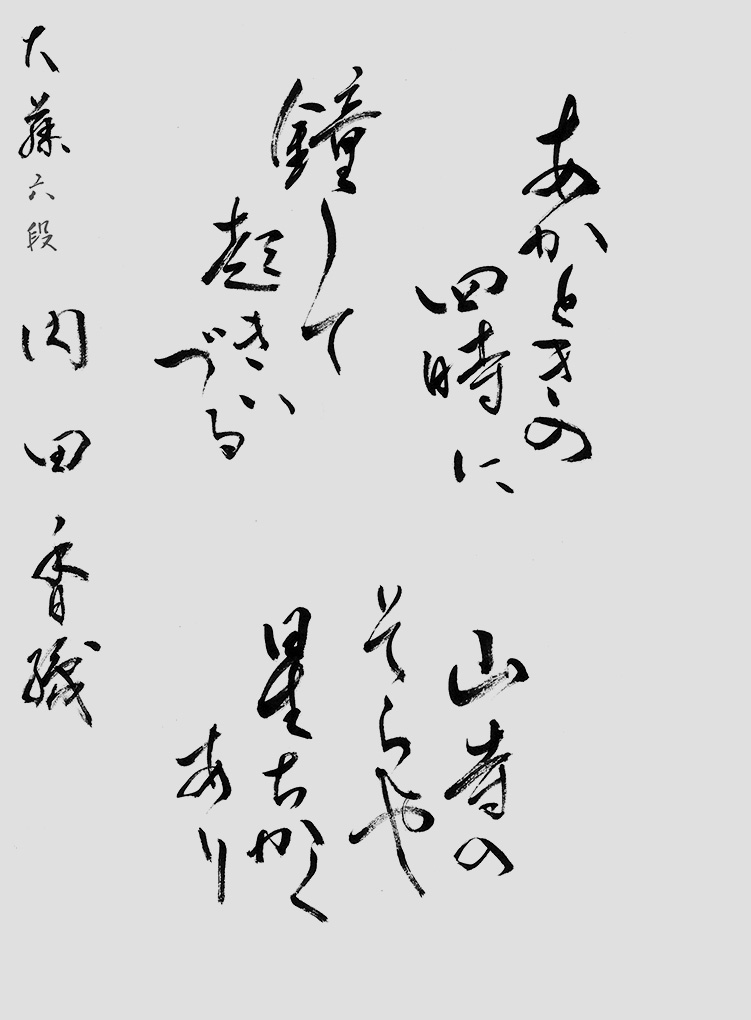 あかときの
四時に
鐘して
起きい
づる
山寺の
そらや
星ちかく
あり
大藤六段 内田香織